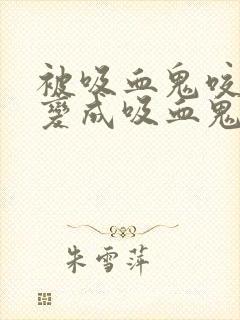 被吸血鬼咬
变成吸血鬼
朱雪萍